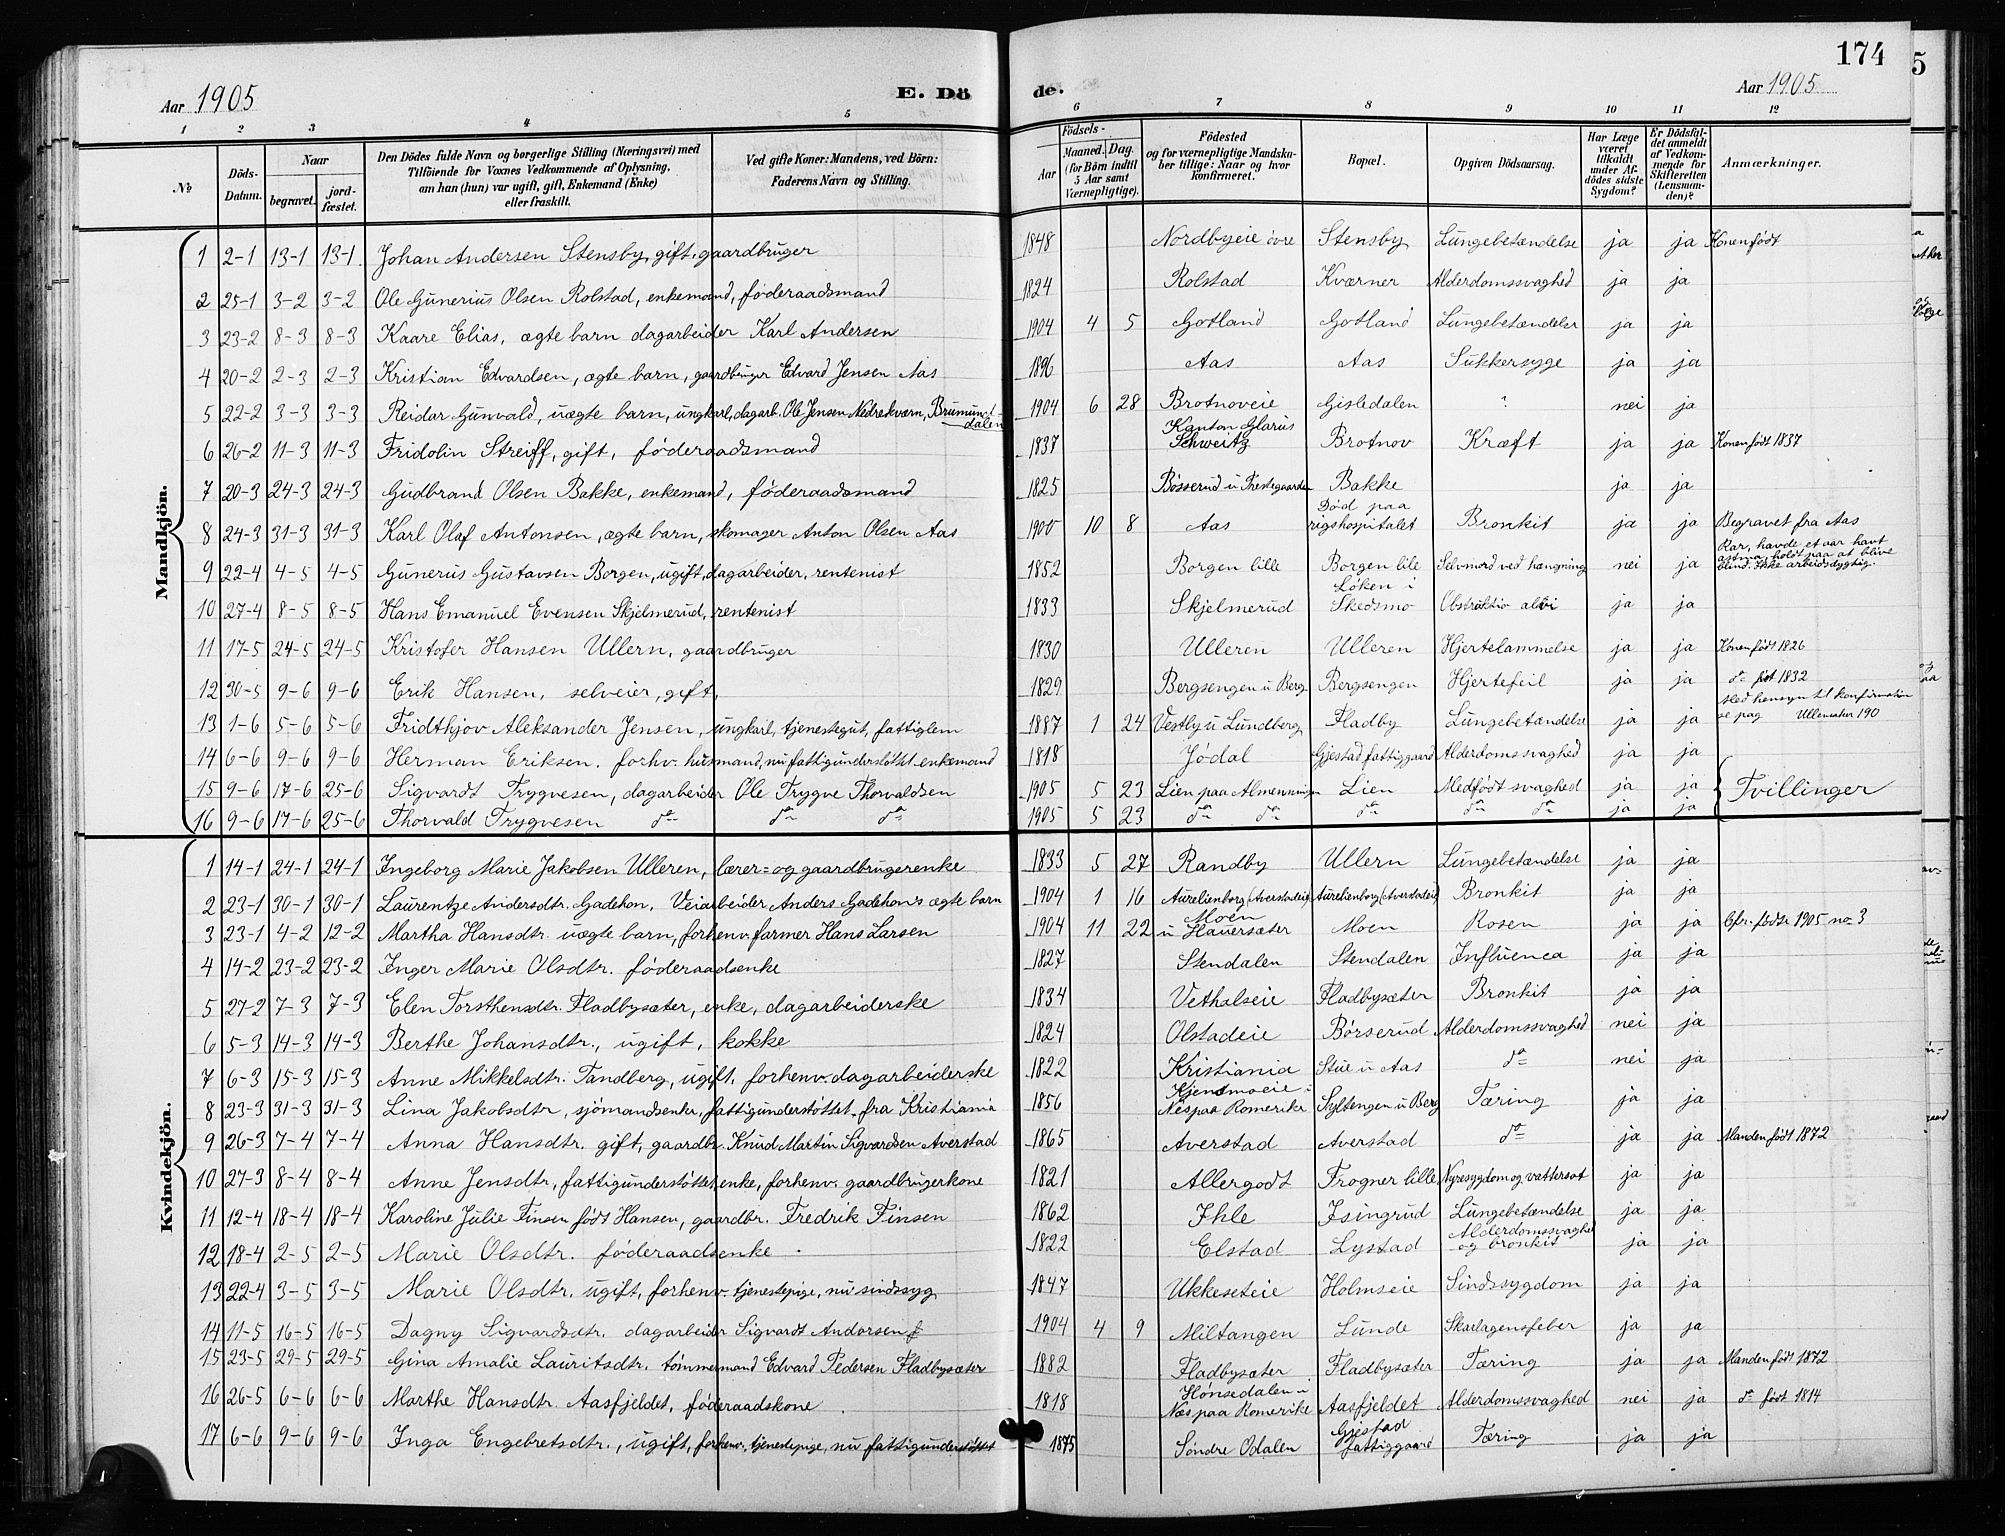 174
5
Aar 1905
E. Dö
de.
Aar 1905
1 2 3 4 5 6 7 8 9 10 11 12
No
Döds-Datum.
Naar
begravet.
jord-fæstet.
Den Dödes fulde Navn og borgerlige Stilling (Næringsvei) med
Tilföiende for Voxnes Vedkommende af Oplysning,
om han (hun) var ugift, gift, Enkemand (Enke)
eller fraskilt.
Ved gifte Koner: Mandens, ved Börn:
Faderens Navn og Stilling.
Födsels-
Aar
Maaned. Dag.
(for Börn indtil
5 Aar samt
Værnepligtige).
Födested
og for værnepligtige Mandska-
ber tillige: Naar og hvor
konfirmeret.
Bopæl.
Opgiven Dödsaarsag.
Har Læge
været
tilkaldt
under Af-
dödes sidste
Sygdom?
Er Dödsfal-
det anmeldt
af Vedkom-
mende for
Skifteretten
(Lensman-
den)?
Anmærkninger.
Mandkjön.
1 2-1 13-1 13-1 Johan Andersen Stensby, gift, gaardbruger 1848 Nordbyeie övre Stensby Lungebetændelse ja ja Konen født
2 25-1 3-2 3-2 Ole Gunerius Olsen Rolstad, enkemand, føderaadsmand 1824 Rolstad Kværner Alderdomssvaghed ja ja
3 23-2 8-3 8-3 Kaare Elias, ægte barn dagarbeider Karl Andersen 1904 4 5 Gotland Gotland Lungebetændelse ja ja
4 20-2 2-3 2-3 Kristian Edvardsen, ægte barn, gaardbruger Edvard Jensen Aas 1896 Aas Aas Sukkersyge ja ja
5 22-2 3-3 3-3 Reidar Gunvald, uægte barn, ungkarl, dagarb. Ole Jensen Nedrekværn, Brumund-dalen 1904 6 28 Brotnoveie Gisledalen ? nei ja
6 26-2 11-3 11-3 Fridolin Streiff, gift, føderaadsmand 1837 Kanton Glarus Schweitz Brotnov Kræft ja ja Konen født 1837
7 20-3 24-3 24-3 Gudbrand Olsen Bakke, enkemand, føderaadsmand 1825 Bøsserud u Prestegaarden Bakke ja ja
8 24-3 31-3 31-3 Karl Olaf Antonsen, ægte barn, skomager Anton Olsen Aas 1900 10 8 Aas Død paa rigshospitalet Bronkit ja ja Begravet fra Aas
9 22-4 4-5 4-5 Gunerus Gustavsen Borgen, ugift, dagarbeider, rentenist 1852 Borgen lille Borgen lile Selvmord ved hængning nei ja Rar, havde et aar havt astma, holdt paa at blive blind. Ikke arbeidsdygtig.
10 27-4 8-5 8-5 Hans Emanuel Evensen Skjelmerud, rentenist 1833 Skjelmerud Löken i Skedsmo Obstruktio alvi ja ja
11 17-5 24-5 24-5 Kristofer Hansen Ullern, gaardbruger 1830 Ulleren Ulleren Hjertelammelse ja ja Konen født 1826
12 30-5 9-6 9-6 Erik Hansen, selveier, gift, 1829 Bergsengen u Berg Bergsengen Hjertefeil ja ja do født 1832
13 1-6 5-6 5-6 Fridthjov Aleksander Jensen, ungkarl, tjenestegut, fattiglem 1887 1 24 Vestby u Lundberg Fladby Lungebetændelse ja ja Med hensyn til konfirmation se pag 190
14 6-6 9-6 9-6 Herman Eriksen, forhv. husmand, nu fattigunderstøttet enkemand 1818 Jødal Gjestad fattiggaard Alderdomssvaghed ja ja
15 9-6 17-6 25-6 Sigvardt Trygvesen, dagarbeider Ole Trygve Thorvaldsen 1905 5 23 Lien paa Almenningen Lien Medfödt svaghed ja ja Tvillinger
16 9-6 17-6 25-6 Thorvald Trygvesen do do do 1905 5 23 do do do do do ja ja
Kvindekjön.
1 14-1 24-1 24-1 Ingeborg Marie Jakobsen Ulleren, lærer= og gaardbrugerenke 1833 5 27 Randby Ullern Lungebetændelse ja ja
2 23-1 30-1 30-1 Laurentze Andersdtr. Gadehon, Veiarbeider Anders Gadehon's ægte barn 1904 1 16 Aurelienborg (Averstadeie) Aurelienborg (Averstadeie) Bronkit ja ja
3 23-1 4-2 12-2 Martha Hansdtr. uægte barn, forhenv. farmer Hans Larsen 1904 11 22 Moen u Hauersæter Moen Rosen ja ja Cfr. fødte 1905 no 3
4 14-2 23-2 23-2 Inger Marie Olsdtr. føderaadsenke 1827 Stendalen Stendalen Influenca ja ja
5 27-2 7-3 7-3 Elen Torsthensdtr. Fladbysæter, enke, dagarbeiderske 1834 Vethalseie Fladbysæter Bronkit ja ja
6 5-3 14-3 14-3 Berthe Johansdtr., ugift, kokke 1824 Olstadeie Børserud Alderdomssvaghed nei ja
7 6-3 15-3 15-3 Anne Mikkelsdtr. Tandberg, ugift, forhenv. dagarbeiderske 1822 Kristiania Stue u Aas do nei ja
8 23-3 31-3 31-3 Lina Jakobsdtr, sjömandsenke, fattigunderstøttet fra Kristiania 1856 Kjendmoeie i Nes paa Romerike Syltengen u Berg Tæring ja ja
9 26-3 7-4 7-4 Anna Hansdtr. gift, gaardbr. Knud Martin Sigvardsen Averstad 1865 Averstad Averstad do ja ja Manden født 1872
10 27-3 8-4 8-4 Anne Jensdtr, fattigunderstøttet, enke, forhenv. gaardbrugerkone 1821 Allergodt Frogner lille Nyresygdom og vattersot ja ja
11 12-4 18-4 18-4 Karoline Julie Finsen født Hansen, gaardbr. Fredrik Finsen 1862 Ihle Isingrud Lungebetændelse ja ja
12 18-4 2-5 2-5 Marie Olsdtr. føderaadsenke 1822 Elstad Lystad Alderdomssvaghed og bronkit ja ja
13 22-4 3-5 3-5 Marie Olsdtr. ugift, forhenv. tjenestepige, nu sindssyg 1847 Ukkeseteie Holmseie Sindssygdom ja ja
14 11-5 16-5 16-5 Dagny Sigvardsdtr. dagarbeider Sigvardt Andersen 1904 4 9 Miltangen Lunde Skarlagensfeber ja ja
15 23-5 29-5 29-5 Gina Amalie Lauritsdtr. tömmermand Edvard Pedersen Fladbysæter 1882 Fladbysæter Fladbysæter Tæring ja ja Manden født 1872
16 26-5 6-6 6-6 Marthe Hansdtr. Aasfjeldet, føderaadskone 1818 Hönsedalen i Næs paa Romerike Aasfjeldet Alderdomssvaghed nei ja do født 1814
17 6-6 9-6 9-6 Inga Engebretsdtr., ugift, forhenv. tjenestepige, nu fattigunderstøttet 1875 Söndre Odalen Gjestad fattiggaard Tæring ja ja